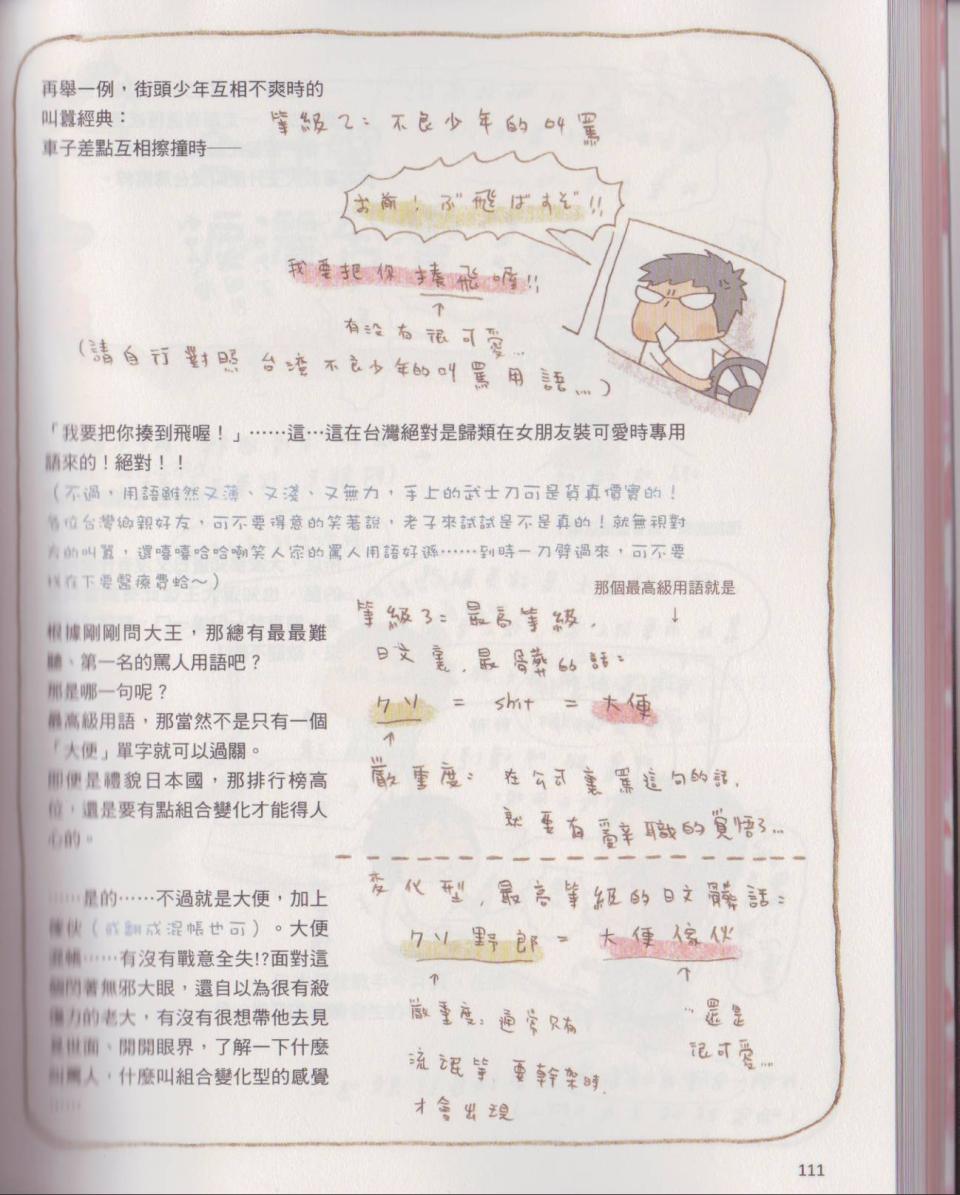 再舉一例，街頭少年互相不爽時的
叫囂經典：
車子差點互相擦撞時——
等級2：不良少年的叫罵
お前！ぶ飛ばすぞ!!
我要把你揍飛喔!!
↑
有沒有很可愛…
（請自行對照台灣不良少年的叫罵用語…）
「我要把你揍到飛喔！」……這…這在台灣絕對是歸類在女朋友裝可愛時專用
語來的！絕對！！
（不過，用語雖然又薄、又淺、又無力，手上的武士刀可是貨真價實的！
各位台灣鄉親好友，可不要得意的笑著說，老子來試試是不是真的！就無視對
方的叫囂，還嘻嘻哈哈嘲笑人家的罵人用語好遜……到時一刀劈過來，可不要
找在下要醫療費蛤～）
根據剛剛問大王，那總有最最難
聽、第一名的罵人用語吧？
那是哪一句呢？
最高級用語，那當然不是只有一個
「大便」單字就可以過關。
即便是禮貌日本國，那排行榜高
位，還是要有點組合變化才能得人
心的。
那個最高級用語就是
↓
等級3：最高等級，
日文裏，最髒的話：
クソ = shit = 大便
↑
嚴重度：在公司裏罵這句的話，
就要有辭職的覺悟了…
……是的……不過就是大便，加上
傢伙（或翻成混帳也可）。大便
混帳……有沒有戰意全失!?面對這
閃著無邪大眼，還自以為很有殺
傷力的老大，有沒有很想帶他去見
見世面、開開眼界，了解一下什麼
叫罵人，什麼叫組合變化型的感覺
……
変化型，最高等級的日文髒話：
クソ野郎 = 大便傢伙
↑
嚴重度：通常只有
流氓等要幹架時，
才會出現
↑
…還是
很可愛…
111